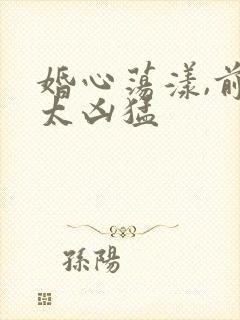 婚心蕩漾,前
太凶猛
孫陽